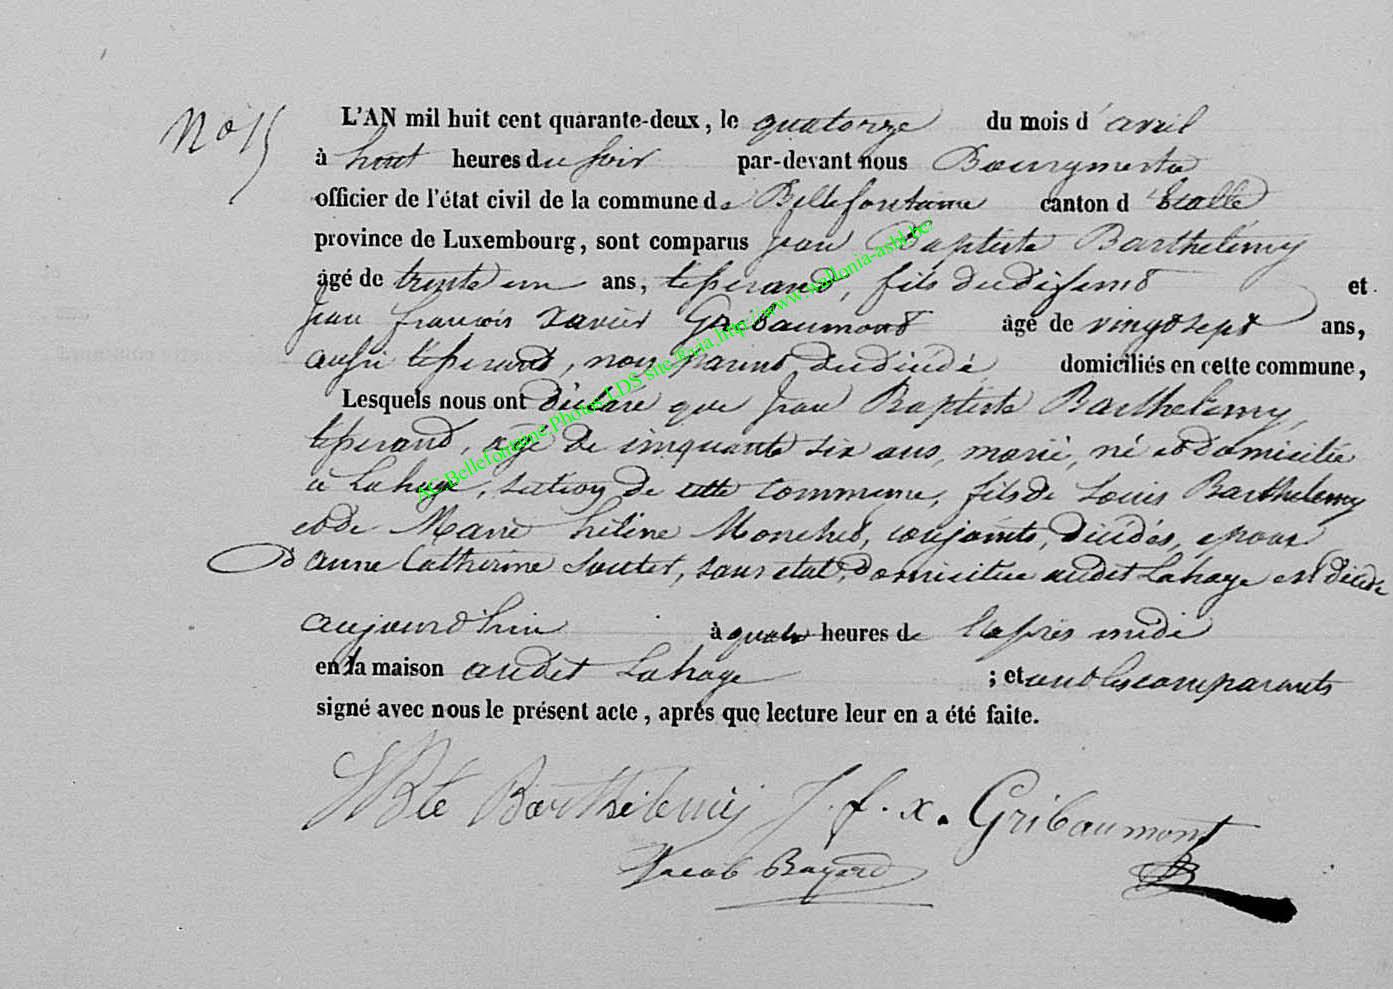 No 15
L'AN mil huit cent quarante-deux, le quatorze du mois d'avril
à huit heures du soir par-devant nous Bourgmestre
officier de l'état civil de la commune de Bellefontaine canton d'Etalle
province de Luxembourg, sont comparus Jean Baptiste Barthelemy
âgé de trente un ans, tisserand, fils du défunt et
Jean François Xavier Gribaumont âgé de vingt sept ans,
aussi tisserand, non parent du décédé domiciliés en cette commune,
Lesquels nous ont déclaré que Jean Baptiste Barthelemy,
tisserand, agé de cinquante six ans, marié, né et domicilié
à Lahage, section de cette commune, fils de Louis Barthelemy
et de Marie hélène Monchet, conjoints, décédés, epoux
d'anne Catherine, sans etat, domiciliée audit Lahage est décédé
aujourd'hui à quatre heures de l'après midi
en la maison audit Lahage ; et ont les comparants
signé avec nous le présent acte, après que lecture leur en a été faite.
JBte Barthélemy J. f. x. Gribaumont
Jacob Bayard
AS Bellefontaine,Photos LDS site Reşia http://www.wallonia-asbl.be/